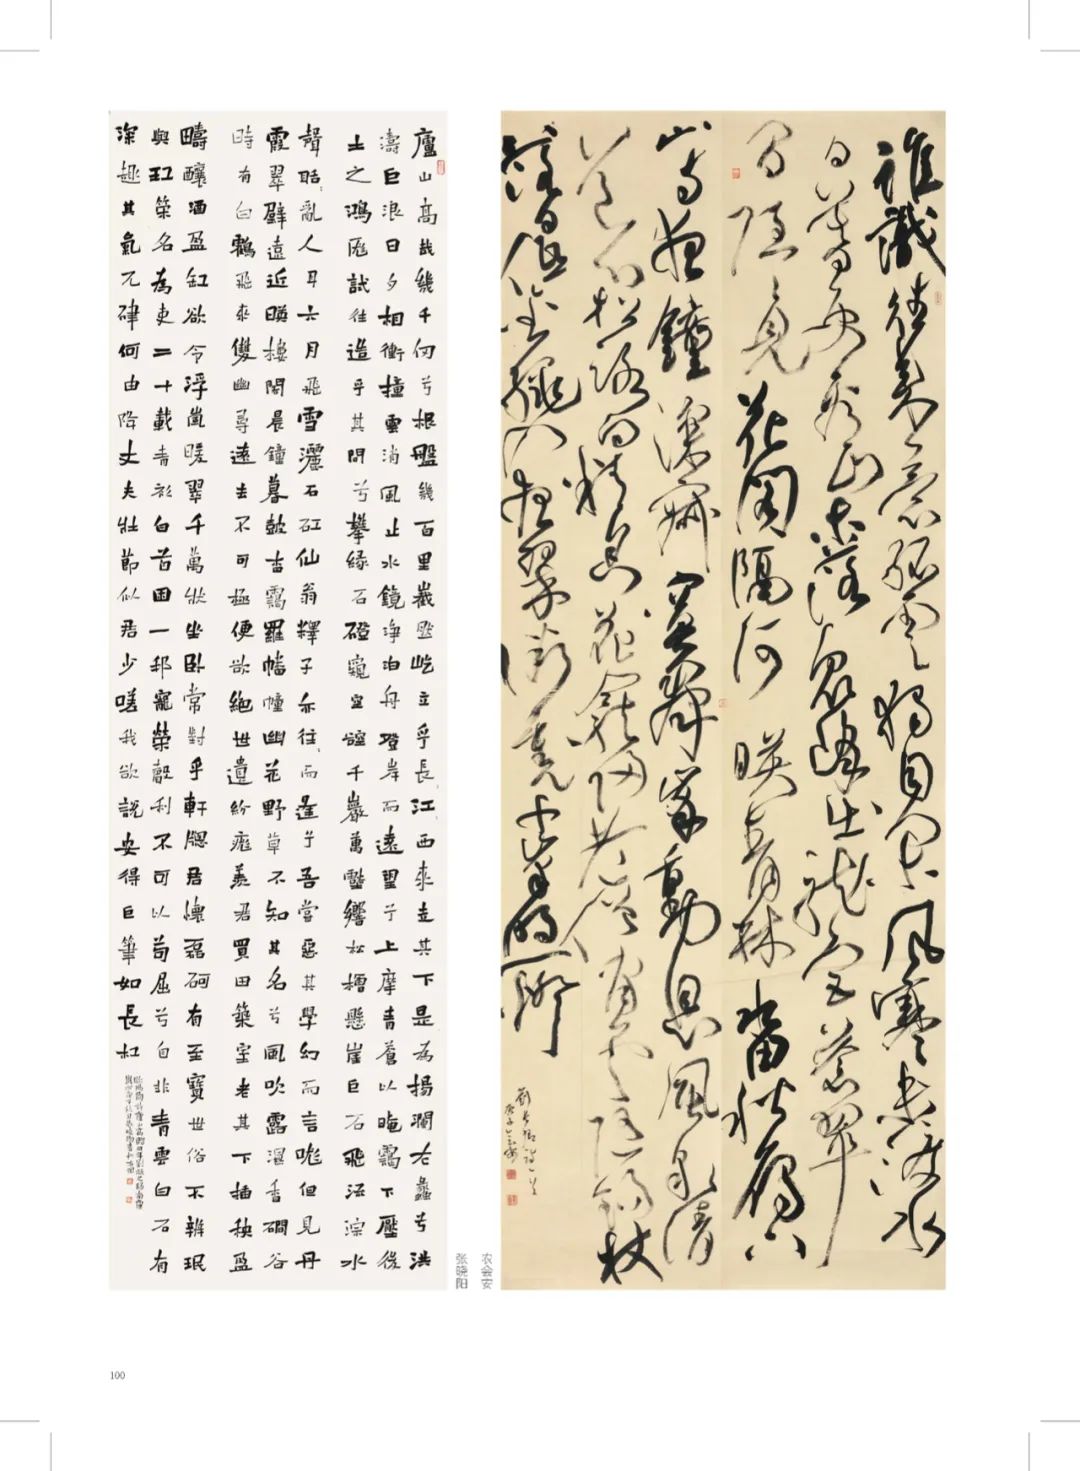 誰識往來意孤雲獨自閑風寒未渡水
日暮更看山木落衆峰出龍宮蒼翠
間隱〻見花閣隔河暎青林水田秋雁下
山寺夜鐘深寂寞群動息風泉清
道心石松路向精舍花龕歸老僧閑雲隨錫杖
落日低金繩入夜翠微裏千峰明一燈
劉長卿詩一首
庚子會安
农会安
张晓阳
廬山高哉幾千仞兮根盤幾百里巀嵲屹立乎長江西來走其下是為揚瀾左蠡兮洪
濤巨浪日夕相衝撞雲消風止水鏡淨泊舟登岸而遠望兮上摩青蒼以晻靄下壓後
土之鴻厖試往造乎其間兮攀緣石磴窺空谾千巖萬壑響松檜懸崖巨石飛流淙水
聲聒亂人耳六月飛雪灑石矼仙翁釋子亦往〻而逢兮吾嘗惡其學幻而言哤但見丹
霞翠壁遠近暎樓閣晨鐘暮鼓杳靄羅幡幢幽花野草不知其名兮風吹露濕香澗谷
時有白鶴飛來雙幽尋遠去不可極便欲絕世遺紛痝羨君買田築室老其下插秧盈
疇釀酒盈缸欲令浮嵐暖翠千萬狀坐臥常對乎軒牕君懷磊砢有至寶世俗不辨珉
與玒策名為吏二十載青衫白首困一邦寵榮聲利不可以苟屈兮自非青雲白石有
深趣其氣兀硉何由降丈夫壯節似君少嗟我欲說安得巨筆如長杠
100